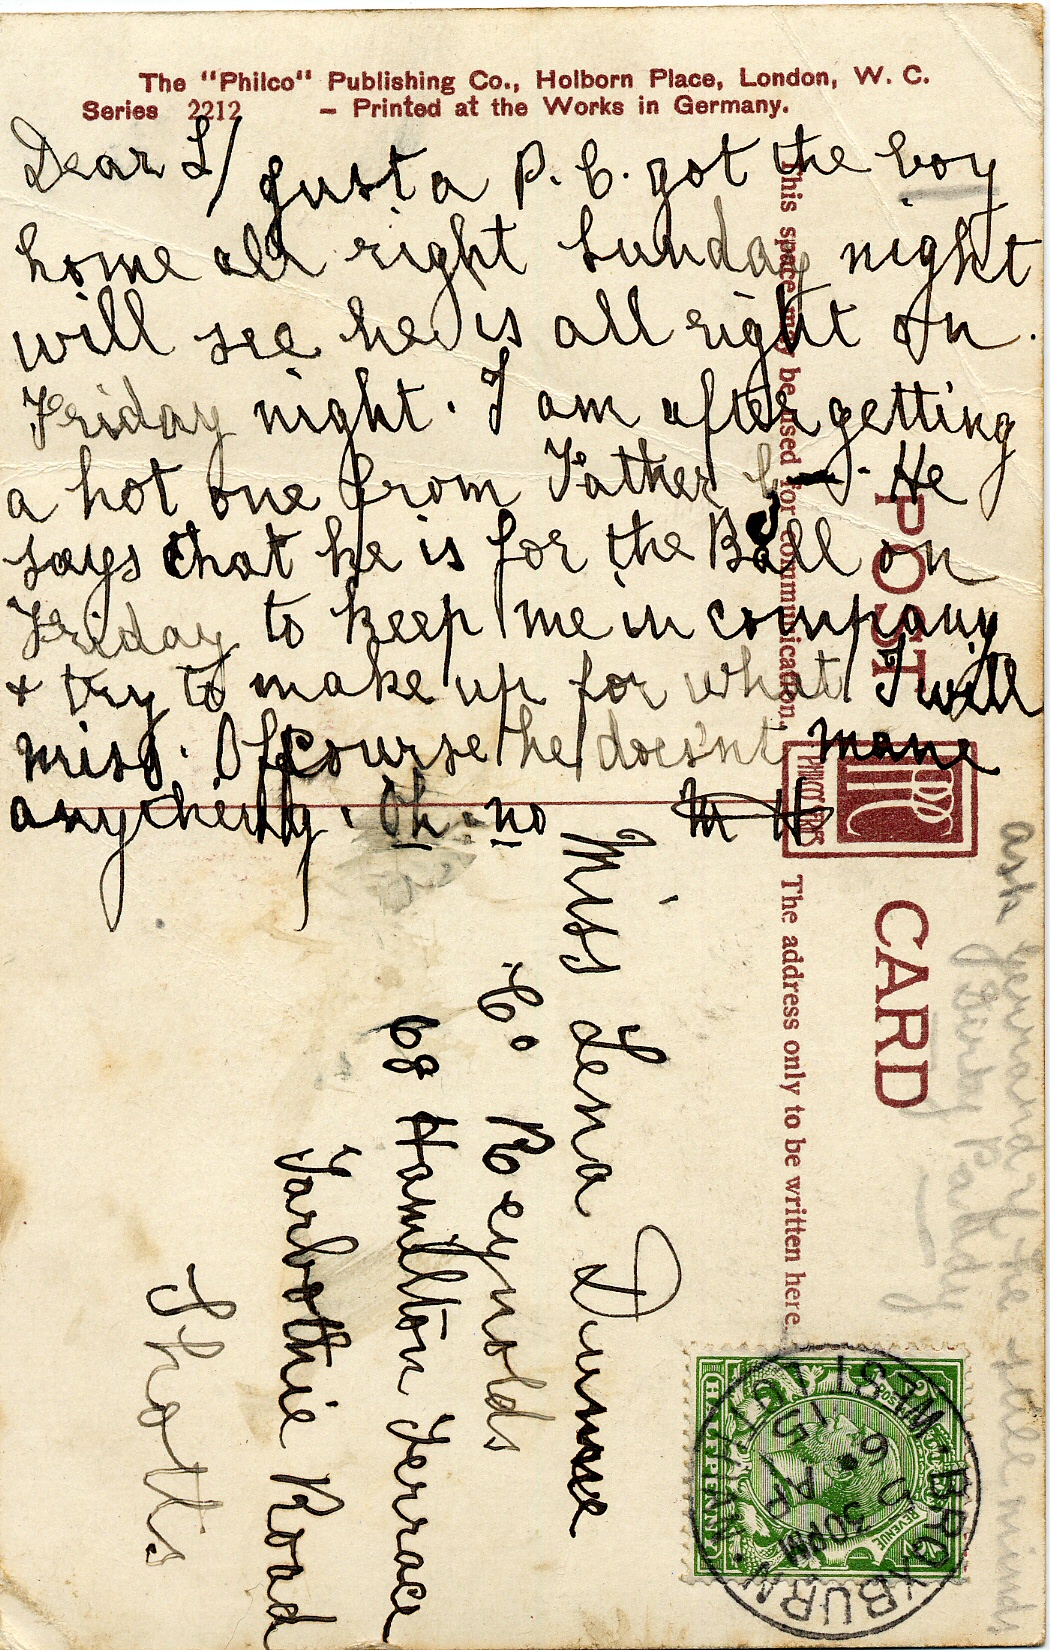 The "Philco" Publishing Co., Holborn Place, London, W. C.
Series 2212 – Printed at the Works in Germany.
Dear L/ Just a P. C. got the boy
home all right Sunday night
will see he is all right on
Friday night. I am after getting
a hot one from Father He
says that he is for the Ball on
Friday to keep me in company
+ try to make up for what I will
miss. Of course he does'nt mane
anything. Oh. no M H
This space may be used for communication.
The address only to be written here.
POST CARD
PHILCO
Miss Lena Dunne
Co Reynolds
68 Hamilton Terrace
Tarbothie Road
Shotts
ask if he still minds
Paddy
HALFPENNY
REVENUE
BROXBURN
WEST LOTHIAN
5 30PM
6 AP
15